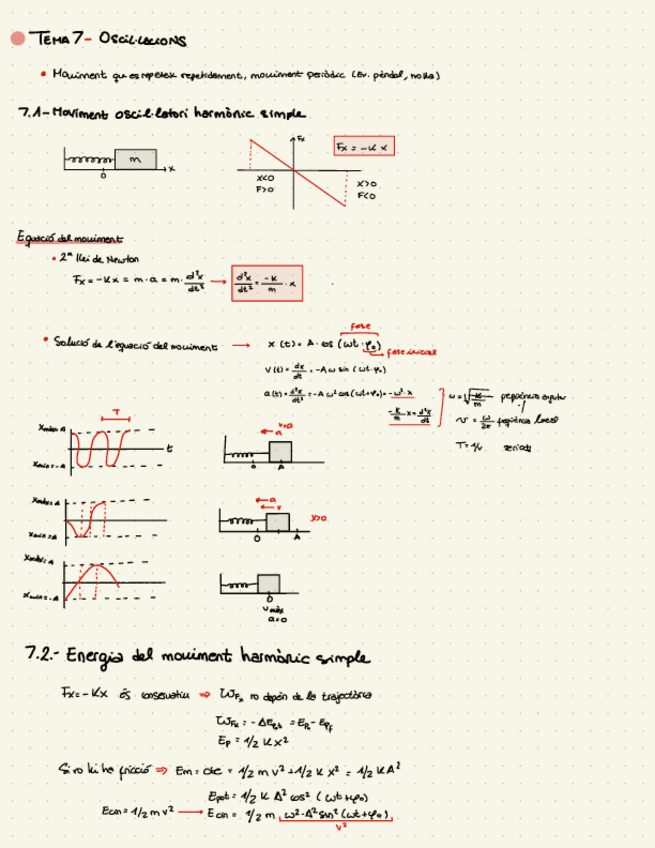 TEMA 7- OSCIL·LACIONS
• Moviment que es repeteix repetidament, moviment periòdic (Ex. pèndol, molla)
7.1- Moviment oscil·latori harmònic simple
m
0
x
Fx
x<0
F>0
x>0
F<0
Fx = -K x
Equació del moviment
• 2ª llei de Newton
Fx = -Kx = m·a = m· d²x/dt² → d²x/dt² = -K/m · x
• Solució de l'equació del moviment → x(t) = A·cos(ωt·φ₀)
fase
fase inicial
v(t) = dx/dt = -Aω sin(ωt·φ₀)
a(t) = d²x/dt² = -Aω² cos(ωt+φ₀) = -ω²·x
-K/m x = d²x/dt
ω = √K/m freqüència angular
ν = ω/2π freqüència lineal
T = 1/ν període
T
xmàx = A
xmín = -A
t
v=0
a
0 A
xmàx = A
xmín = A
a
v
x>0
0 A
xmàx = A
xmín = -A
0
vmàx
a=0
7.2.- Energia del moviment harmònic simple
Fx = -Kx és conservatiu ⇒ WFx no depèn de la trajectòria
WFx = -ΔEpot = Ep₀ - Epf
Ep = 1/2 K x²
Si no hi ha fricció ⇒ Em = cte = 1/2 m v² + 1/2 K x² = 1/2 K A²
Epot = 1/2 K A² cos² (ωt+φ₀)
Ecin = 1/2 m v² → Ecin = 1/2 m ω²·A² sin² (ωt+φ₀)
v²